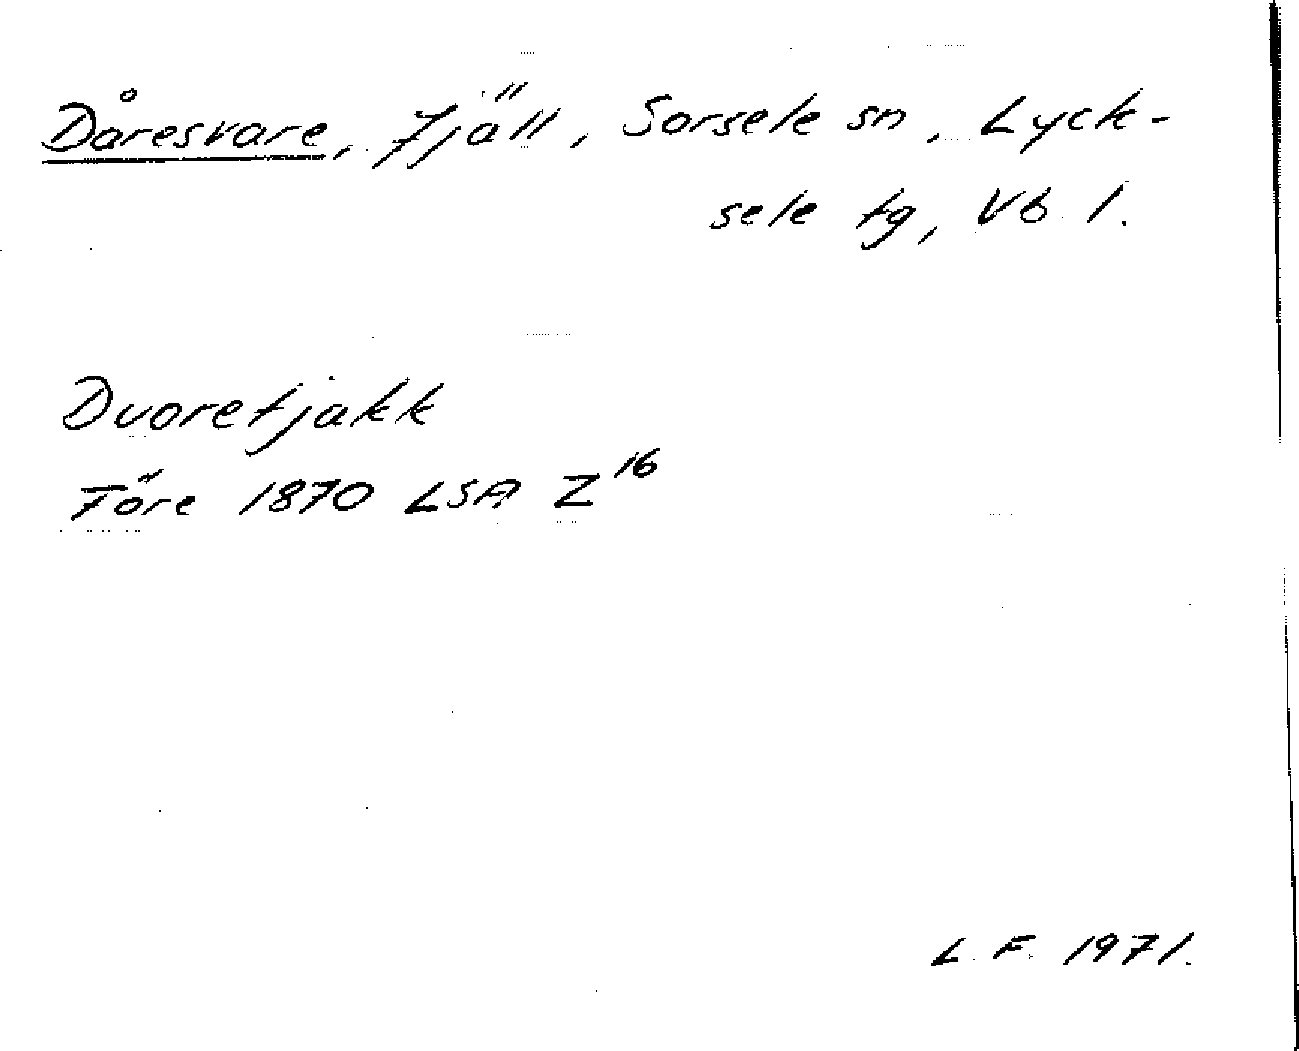 Dåresvare, fjäll, Sorsele sn, Lyck-
sele tg, Vb l.
Duoretjakk
Före 1870 LSA Z16
L. F. 1971.